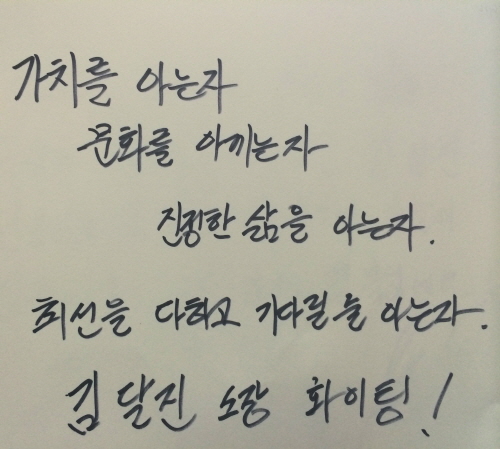 가치를 아는자
문화를 아끼는자
진정한 삶을 아는자.
최선을 다하고 기다릴 늘 아는자.
김달진 소장 화이팅!